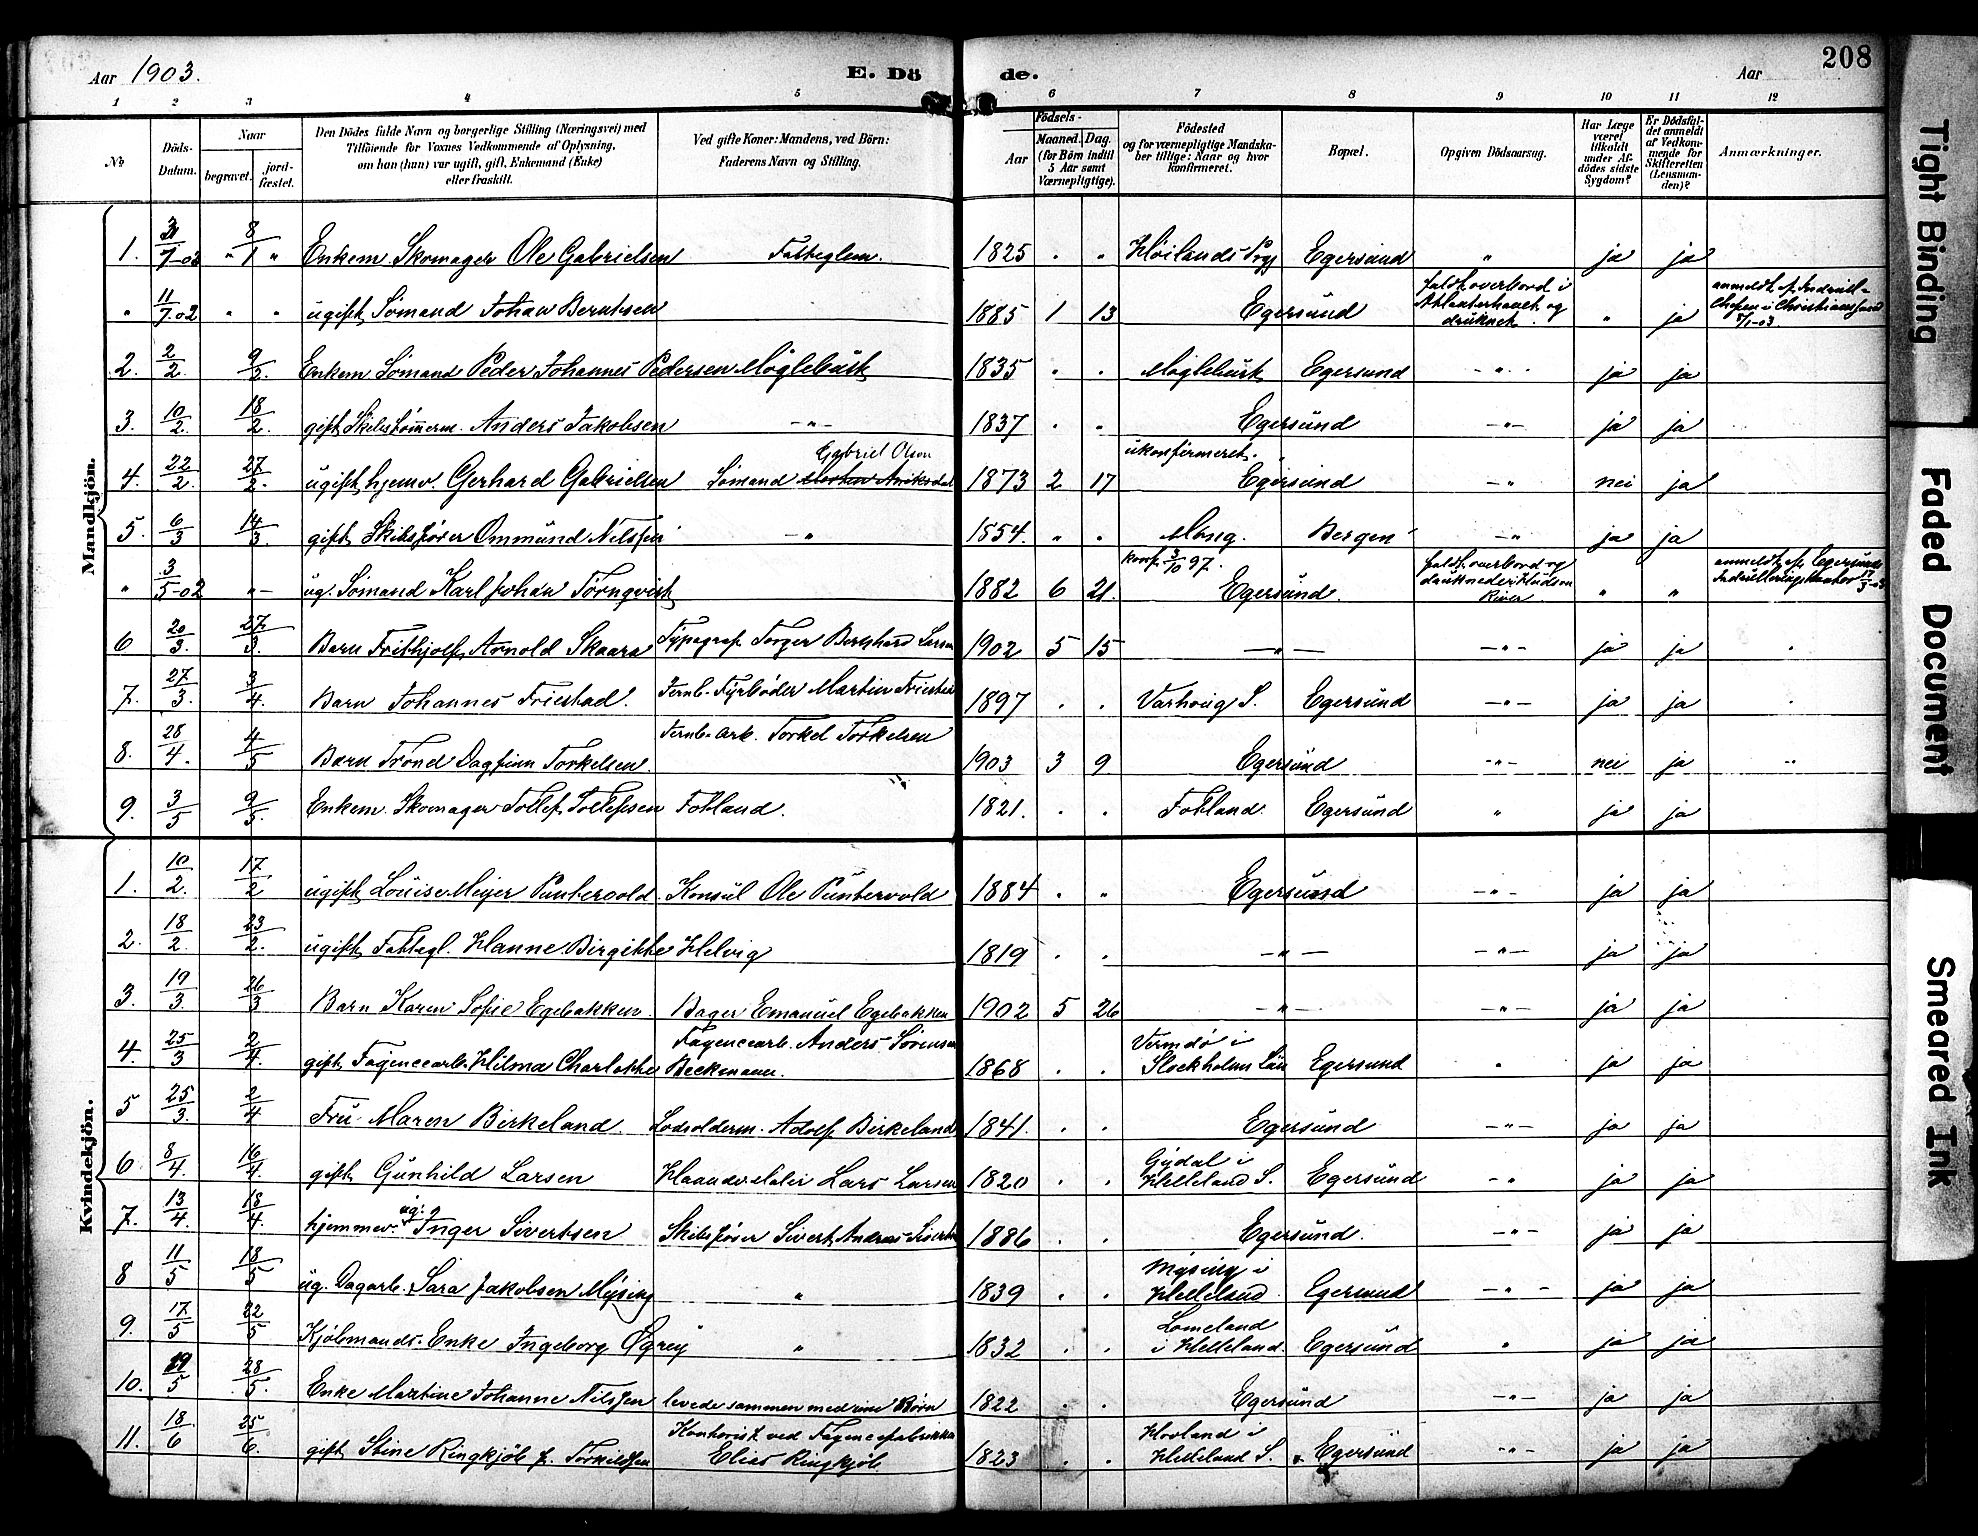 Aar 1903.
E. Dö
de.
Aar
208
1 2 3 4 5 6 7 8 9 10 11 12
No
Döds-Datum.
Naar
begravet.
jord-fæstet.
Den Dödes fulde Navn og borgerlige Stilling (Næringsvei) med
Tilföiende for Voxnes Vedkommende af Oplysning,
om han (hun) var ugift, gift, Enkemand (Enke)
eller fraskilt.
Ved gifte Koner: Mandens, ved Börn:
Faderens Navn og Stilling.
Födsels-
Aar
Maaned. Dag.
(for Börn indtil
5 Aar samt
Værnepligtige).
Födested
og for værnepligtige Mandska-
ber tillige: Naar og hvor
konfirmeret.
Bopæl.
Opgiven Dödsaarsag.
Har Læge
været
tilkaldt
under Af-
dödes sidste
Sygdom?
Er Dödsfal-
det anmeldt
af Vedkom-
mende for
Skifteretten
(Lensman-
den)?
Anmærkninger.
Mandkjön.
1. 7-02 8/1 " Enkem. Skomager Ole Gabrielsen Fatteglem. 1825 " " Høilands Prgj Egersund " ja ja
" 11/7-02 " " ugift Sømand Johan Berntsen 1885 1 13 Egersund faldt overbord i Atlanterhavet og druknet. " ja anmeldt af Indrull-Chefen i Christianssand
2. 2/2 9/2. Enkem Sømand Peder Johannes Pedersen Møglebust 1835 " " Møglebust Egersund - " - ja ja
3. 10/2. 18/2. gift Skibstømmerm. Anders Jakobsen - " - 1837 " " Egersund - " - ja ja
4. 22/2. 27/2. ugift hjemv. Gerhard Gabrielsen Sømand Gabriel Olsen 1873 2 17 ukonfirmeret. Egersund - " nei ja
5. 6/3 14/3. gift Skibsfører Ommund Nilssen - " 1854. " " Mong. Bergen - " - ja ja
" 3/5-02 " - ug. Sømand Karl Johan Törnqvist 1882 6 21. konf. 3/10 97. Egersund. faldt overbord og druknede i Hudson River " " anmeldt af Egersunds Indrulleringskontor
6 20/3. 27/3. Barn Frithjolf Arnold Skaara Typograf Torger Bernhard Larsen 1902 5 15 - " - - " - ja ja "
7. 27/3. 3/4. Barn Johannes Friestad. Jernb.-Fyrbøder Martin Friestad 1897 " " Varhoug S. Egersund - " - ja ja "
8. 28/4. 4/5 Barn Trond Dagfinn Torkelsen. Jernb-arb. Torkel Torkelsen 1903 3 9 Egersund - " - nei ja "
9. 3/5 9/5. Enkem. Skomager Tollef Tollefsen Fotland. 1821. " " Fotland. Egersund " ja ja
Kvindekjön.
1. 10/2. 17/2 ugift Louise Meyer Puntervold. Konsul Ole Puntervold 1884 " " Egersund - " - ja ja
2. 18/2. 23/2. ugift Fattegl. Hanne Birgitte Helvig 1819 " " - " - - " - ja ja
3. 19/3. 26/3 Barn Karen Sofie Egebakken. Bager Emanuel Egebakken 1902 5 26 - " - " ja ja
4. 25/3 2/4. gift Fayencearb. Hilma Charlotte Fayencearb. Anders Sörensen Beckmann. 1868 " " Vermdö i Stockholms Län Egersund " ja ja
5 25/3. 2/4 Fru Maren Birkeland. Lodsolderm. Adolf Birkeland 1841. " " Egersund - " - ja ja
6. 8/4. 16/4. gift Gunhild Larsen Lars Larsen 1820 " " Gydal i Helleland S. Egersund - " ja ja
7. 13/4. 18/4. hjemmev. ug. Inger Sivertsen Skibsfører Sivert Andreas Sivertsen 1886 " " Egersund. - " - ja ja
8 11/5 18/5 ug. Dagarb. Sara Jakobsen Mysing " 1839 " " Mysing i Helleland Egersund - " - ja ja
9. 17/5 22/5 Kjøbmands-Enke Ingeborg Øgrey " 1832 " " Lomeland i Helleland. Egersund " ja ja
10. 19/5 28/5. Enke Martine Johanne Nilssen levede sammen med sine Børn 1822 " " Egersund - " - ja ja
11. 18/6 25/6. gift Stine Ringkjøb f. Torkildsen Kontorist ved Fayencefabrikken Elias Ringkjøb 1823 " " Hovland i Helleland S. Egersund - " - ja ja
Tight Binding
Faded Document
Smeared Ink